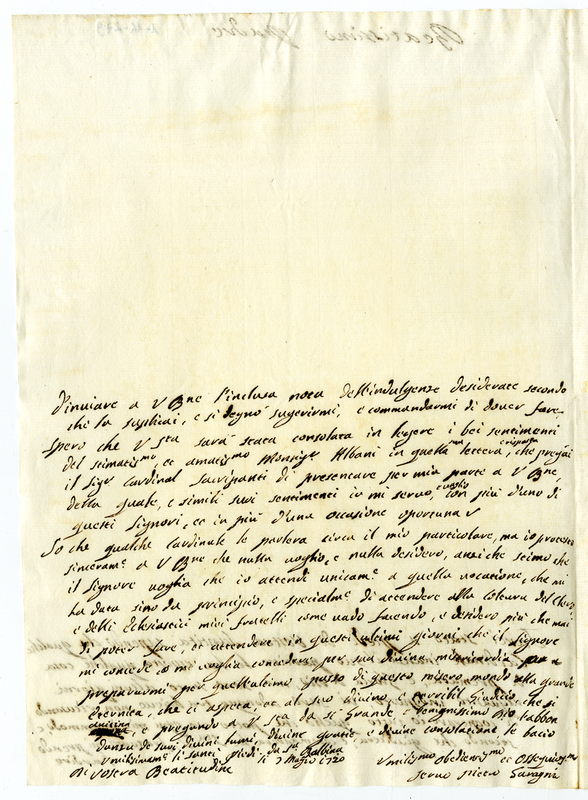 d'inviare a V Bne l'inclusa nota dell'indulgenze desiderate secondo
che la suplicai, e si degnò sugerirmi, e commandarmi di dover fare
Spero che V Sta sarà stata consolata in legere i bei sentimenti
del stimatismo, et amatismo Monsigr Albani in quella sua lettera risposta, che pregai
il Sigr Cardinal Sacripanti di presentare per mia parte a V Bne,
della quale, e simili suoi sentimenti io mi servo, e voglio con più d'uno di
questi Signori, et in più d'una occasione oportuna
So che qualche Cardinale le parlerà circa il mio particolare, ma io protesto
sinceramte a V Bne che nulla voglio, e nulla desidero, anzi che stimo che
il Signore voglia che io attendi unicamte a quella vocatione, che mi
ha data sino da principio, e specialmte di attendere alla coltura del Clero
e delli Ecclesiastici miei fratelli come vado facendo, e desidero più che mai
di poter fare, et attendere in questi ultimi giorni che il Signore
mi concede, o mi voglia concedere per sua divina misericordia
prepararmi per quell'ultimo passo di questo misero mondo alla grande
Eternità, che ci aspetta, et al suo divino, e terribil Giuditio, che si
avicina, e pregando a V Sta da sì Grande, e benignissimo Dio l'abbon
danza de suoi divini lumi, divine gratie, e divine consolationi, le bacio
umilissimamte li santi piedi, da Sta Balbina
Di Vostra Beatitudine li 7 Magio 1720
Umilismo obedientmo et Ossequiosmo
servo Pietro
Beatissimo Padre